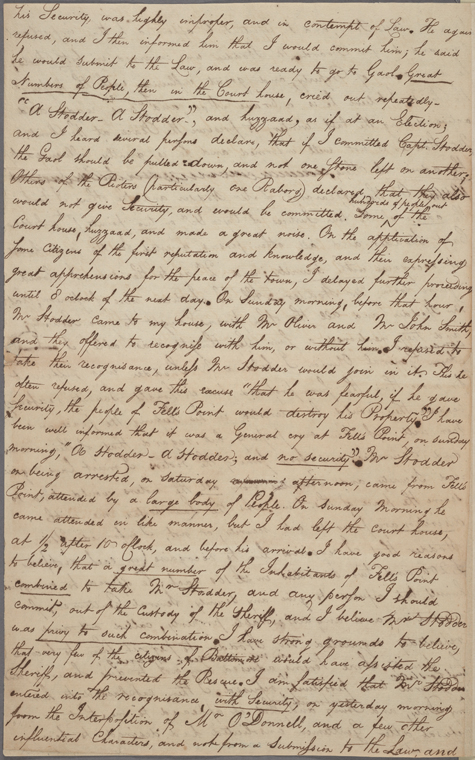 his Security, was highly improper, and in contempt of Law. He again
refused, and I then informed him that I would commit him; he said
he would submit to the Law, and was ready to go to Gaol. Great
Numbers of People, then in the Court house, cried out repeatedly—
"A Stodder – A Stodder –", and huzzaad, as if at an Election;
and I heard several persons declare, that if I committed Capt. Stodder
the Gaol should be pulled down and not one Stone left on another;
Others of the Rioters (particularly one Raborg) declared that they also
would not give Security, and would be committed. Some hundreds of people out of the
Court house, huzzaad, and made a great noise. On the application of
some Citizens of the first reputation and knowledge, and their expressing
great apprehensions for the peace of the town, I delayed further proceeding
until 8 oclock of the next day. On Sunday morning, before that hour,
Mr Stodder came to my house, with Mr Oliver and Mr John Smith,
and they offered to recognise with him, or without him. I refused to
take their recognisance, unless Mr Stodder would join in it. This he
often refused, and gave this excuse "that he was fearful, if he gave
Security, the people of Fells Point would destroy his Property." I have
been well informed that it was a General cry at Fells Point, on Sunday
morning, "A Stodder – A Stodder; and no security". Mr Stodder
on being arrested, on saturday afternoon; came from Fells
Point, attended by a large body of People. On Sunday Morning he
came attended in like manner, but I had left the Court house,
at ½ after 10 oClock, and before his arrival. I have good reasons
to believe, that a great number of the Inhabitants of Fells Point
combined to take Mr Stodder, and any person I should
commit, out of the Custody of the Sheriff, and I believe Mr Stodder
was privy to such combination. I have strong grounds to believe,
that very few of the citizens of Baltimore would have assisted the
Sheriff, and prevented the Rescue. I am satisfied that Mr Stodder
entered into the recognisance with Security, on yesterday morning
from the Interposition of Mr O'Donnell, and a few other
influential Characters, and not from a submission to the Law, and